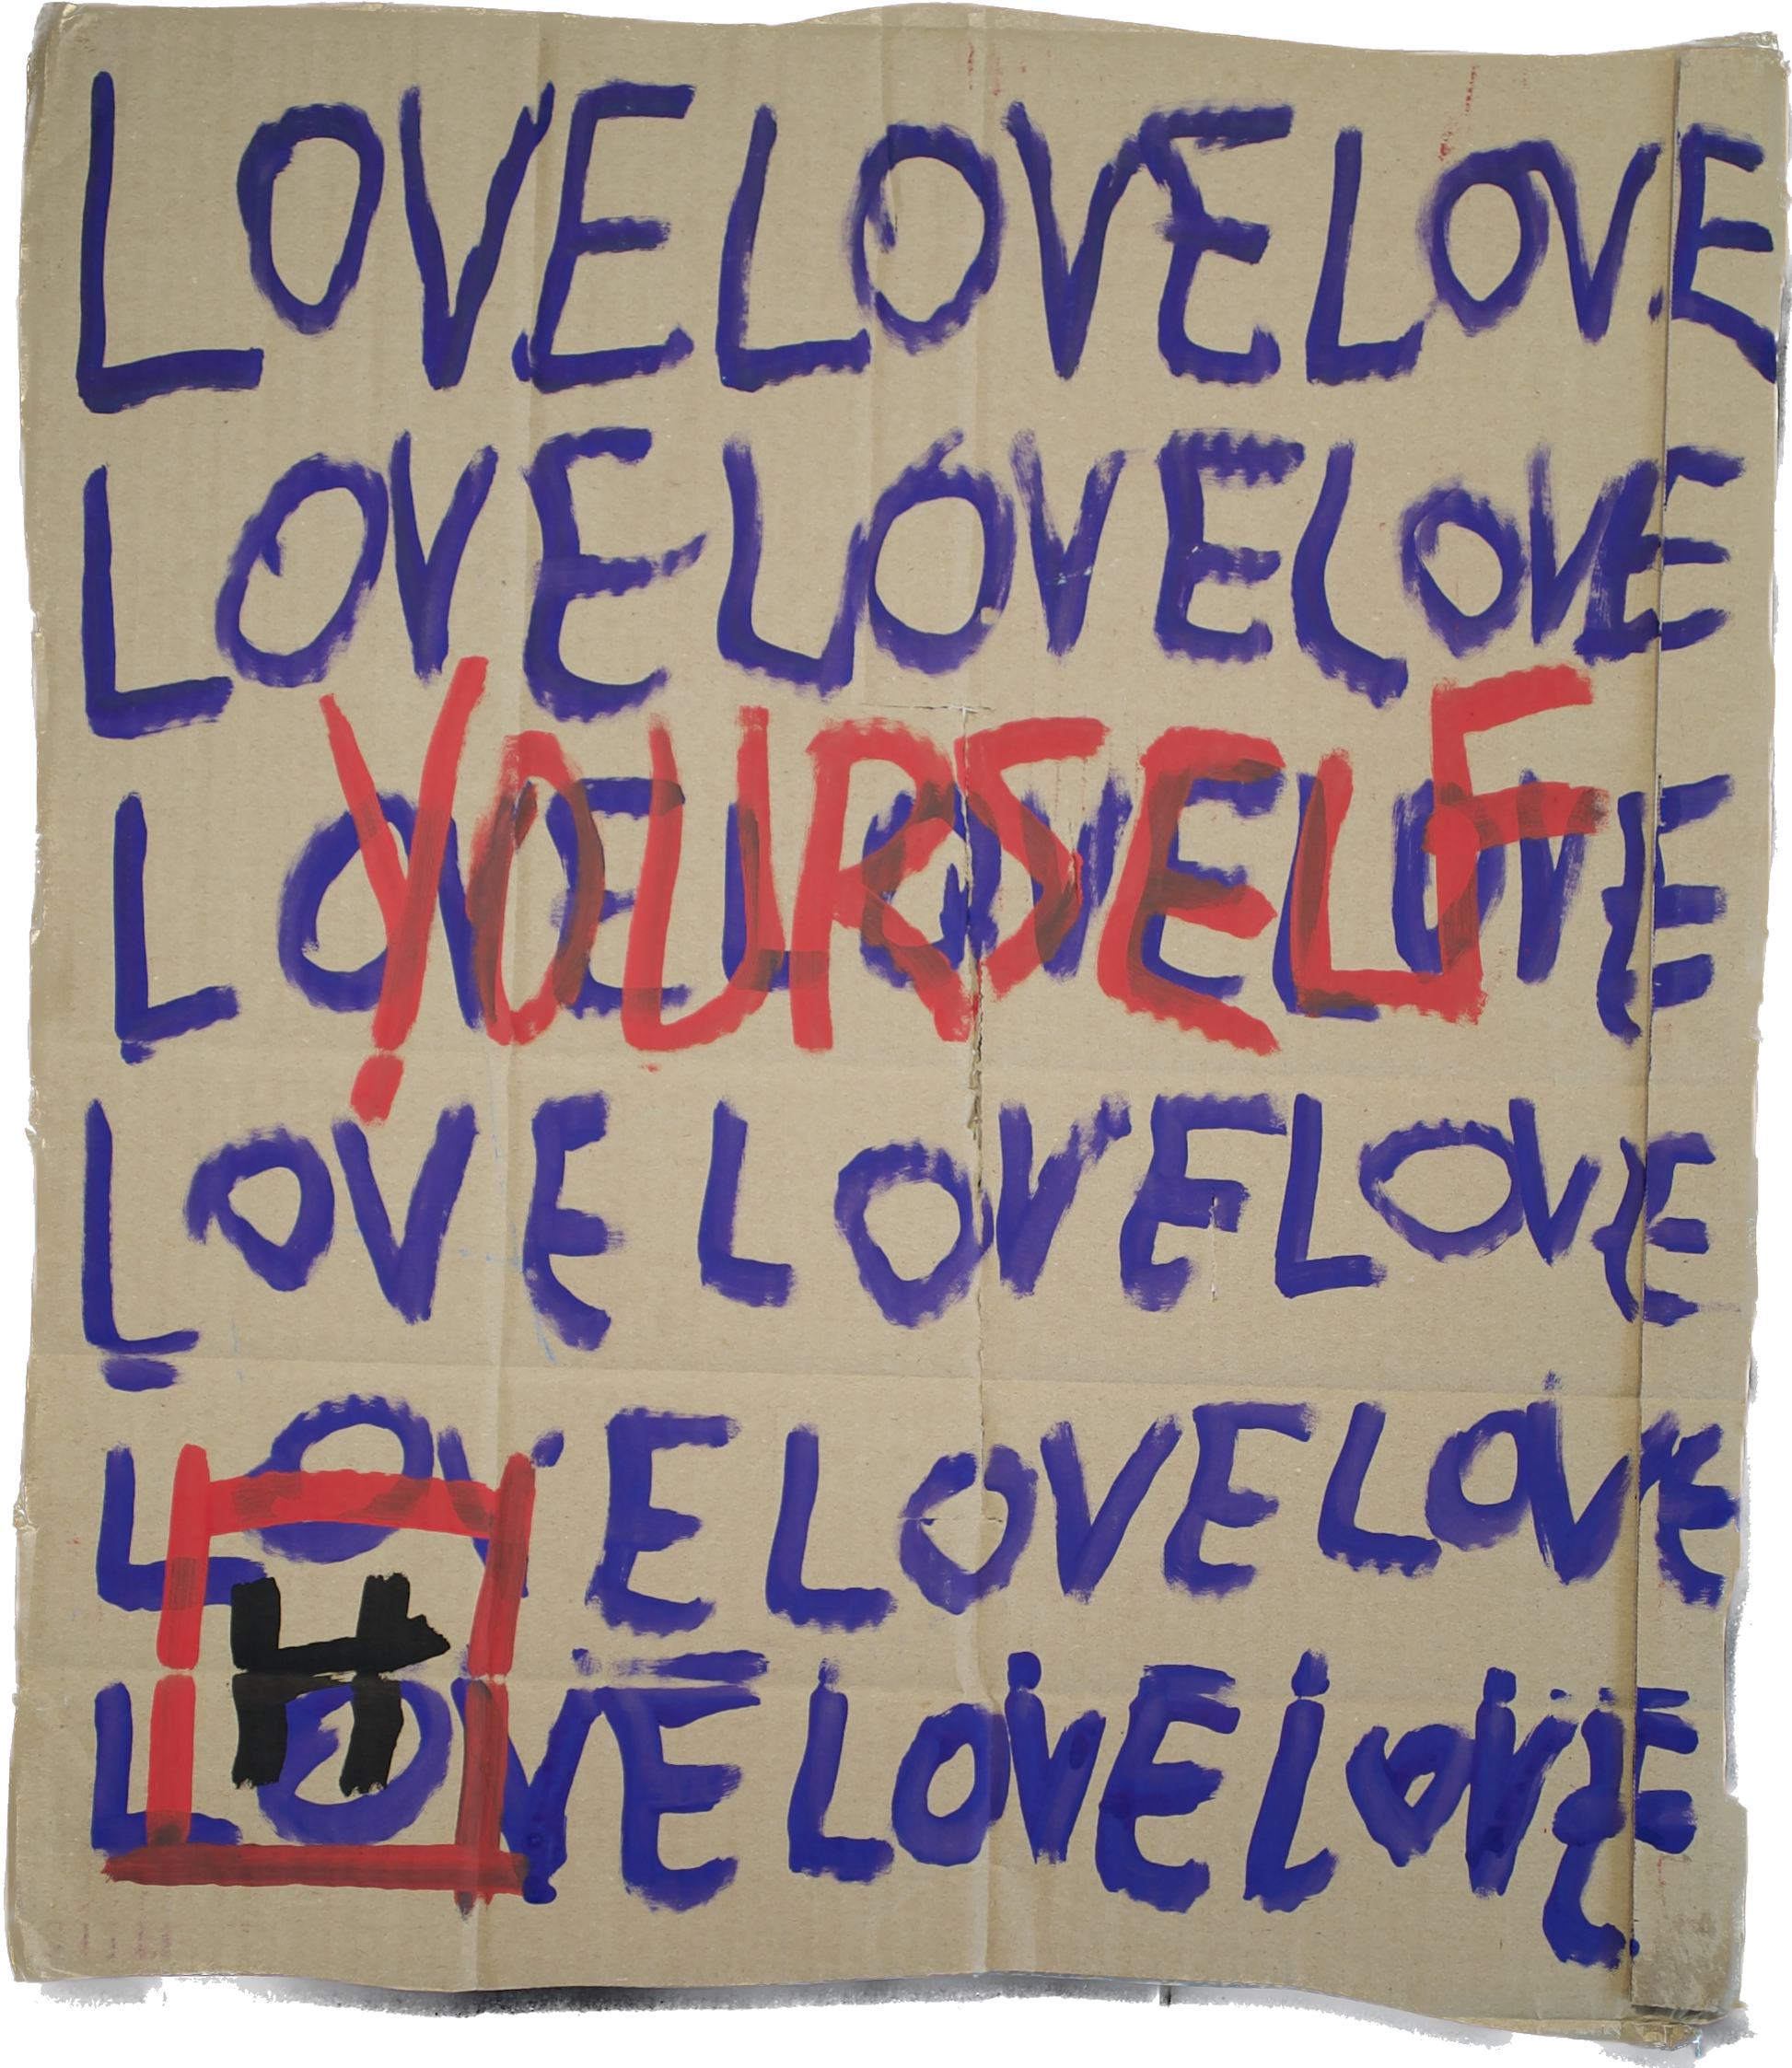 LOVELOVELOVE
LOVELOVELOVE
YOURSELF
LOVELOVELOVE
LOVE LOVELOVE
LOVE LOVE LOVE
H
LOVE LOVELOVE